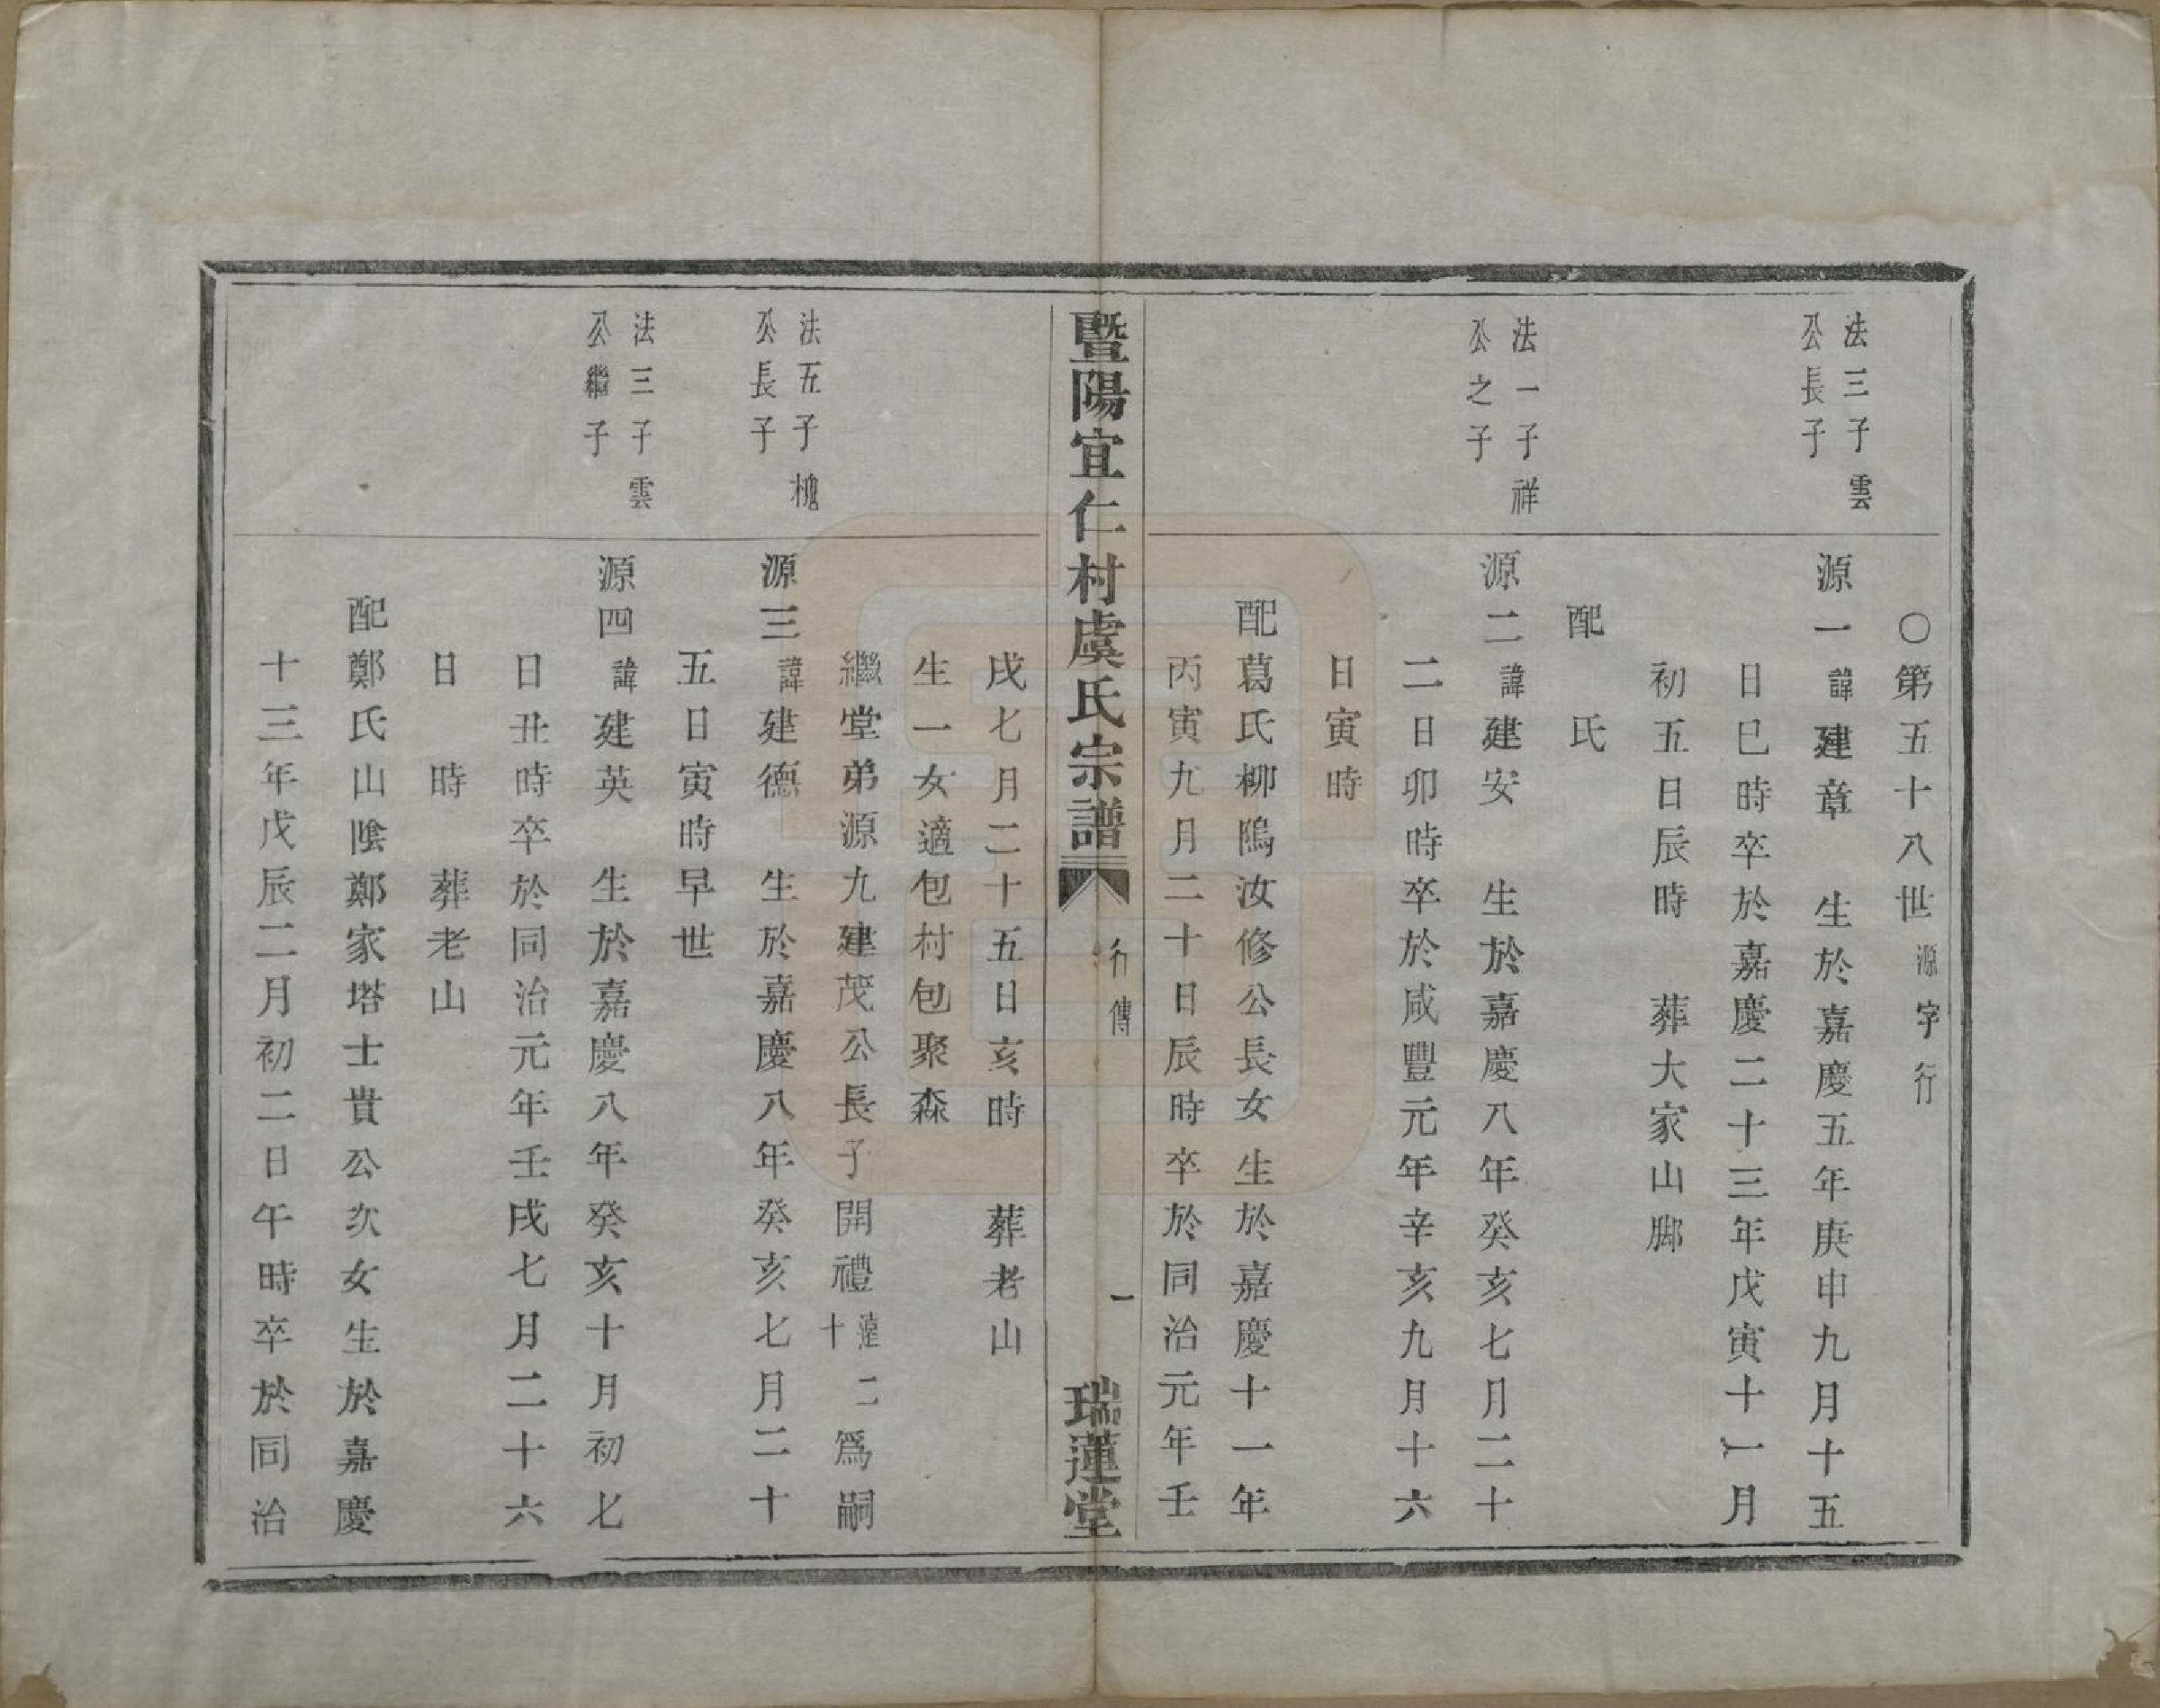 ○第五十八世源字行
法三子雲
公長子
源一諱建章　生於嘉慶五年庚申九月十五
日巳時卒於嘉慶二十三年戊寅十一月
初五日辰時　葬大家山脚
配　氏
法一子祥
公之子
源二諱建安　生於嘉慶八年癸亥七月二十
二日卯時卒於咸豐元年辛亥九月十六
日寅時
配葛氏柳隝汝修公長女生於嘉慶十一年
丙寅九月二十日辰時卒於同治元年壬
暨陽宜仁村虞氏宗譜
行傳
一
瑞蓮堂
戌七月二十五日亥時　葬老山
生一女適包村包聚森
繼堂弟源九建茂公長子開禮達二
十爲嗣
法五子槐
公長子
源三諱建德　生於嘉慶八年癸亥七月二十
五日寅時早世
法三子雲
公繼子
源四諱建英　生於嘉慶八年癸亥十月初七
日丑時卒於同治元年壬戌七月二十六
日　時　葬老山
配鄭氏山陰鄭家塔士貴公次女生於嘉慶
十三年戊辰二月初二日午時卒於同治